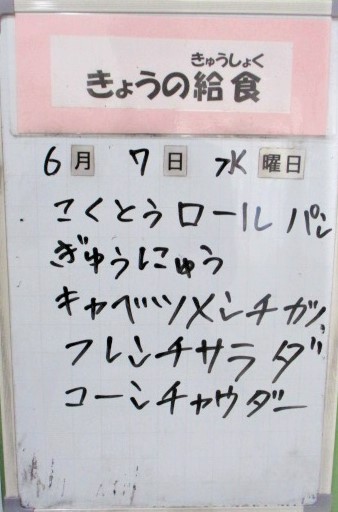 きゅうしょく
きょうの給食
6月 7日 水曜日
こくとうロールパン
ぎゅうにゅう
キャベツメンチカツ
フレンチサラダ
コーンチャウダー